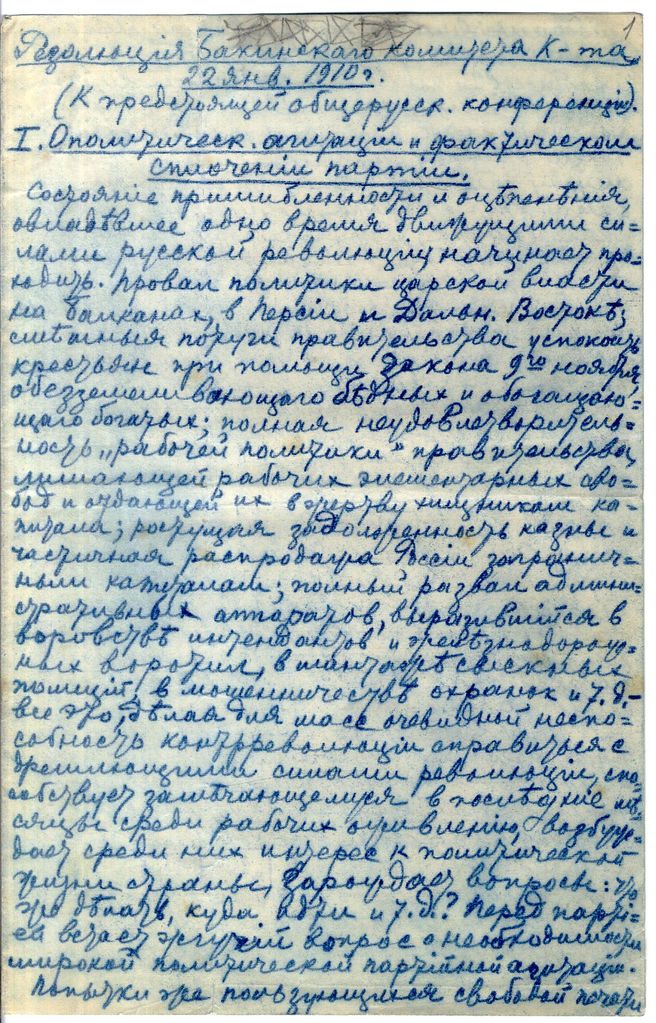 1
Резолюція Бакинскаго комитета К-та
22 янв. 1910 г.
(К предстоящей общерусск. конференціи).
I. О политическ. агитации и фактическом
сплочении партіи.
Состояніе пришибленности и оцѣпенѣнія,
овладѣвшее одно время движущими си=
лами русской революціи, начинает про=
ходить. Провал политики царской власти
на Балканах, в Персіи и Дальн. Востокѣ;
смѣшныя потуги правительства успокоить
крестьян при помощи Закона 9го ноября,
обезземеливающаго бѣдных и обогащаю=
щаго богатых; полная неудовлетворитель=
ность „рабочей политики" правительства,
лишающей рабочих элементарных сво=
бод и отдающей их в жертву хищникам ка=
питала; ростущая задолженность казны и
частичная распродажа Россіи загранич=
ным капиталам; полный развал админи=
стративных аппаратов, выразившійся в
воровствѣ интендантов и желѣзнодорож=
ных воротил, в шантажѣ сыскных
полицій, в мошенничествѣ охранок и т.д.—
все это, дѣлая для масс очевидной неспо=
собность контрреволюціи справиться с
дремлющими силами революціи, спо=
собствует замѣчающемуся в послѣдніе мѣ=
сяцы среди рабочих оживленію, возбуж=
дает среди них интерес к политической
жизни страны, зарождает вопросы: что
же дѣлать, куда идти и т.д.? Перед парті=
ей встает жгучій вопрос о необходимости
широкой политической партійной агитаціи.
Попытки же пользующихся свободой печати